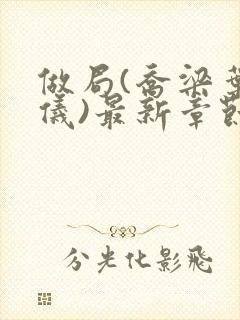 做局(喬梁葉
儀)最新章節
分光化影飛